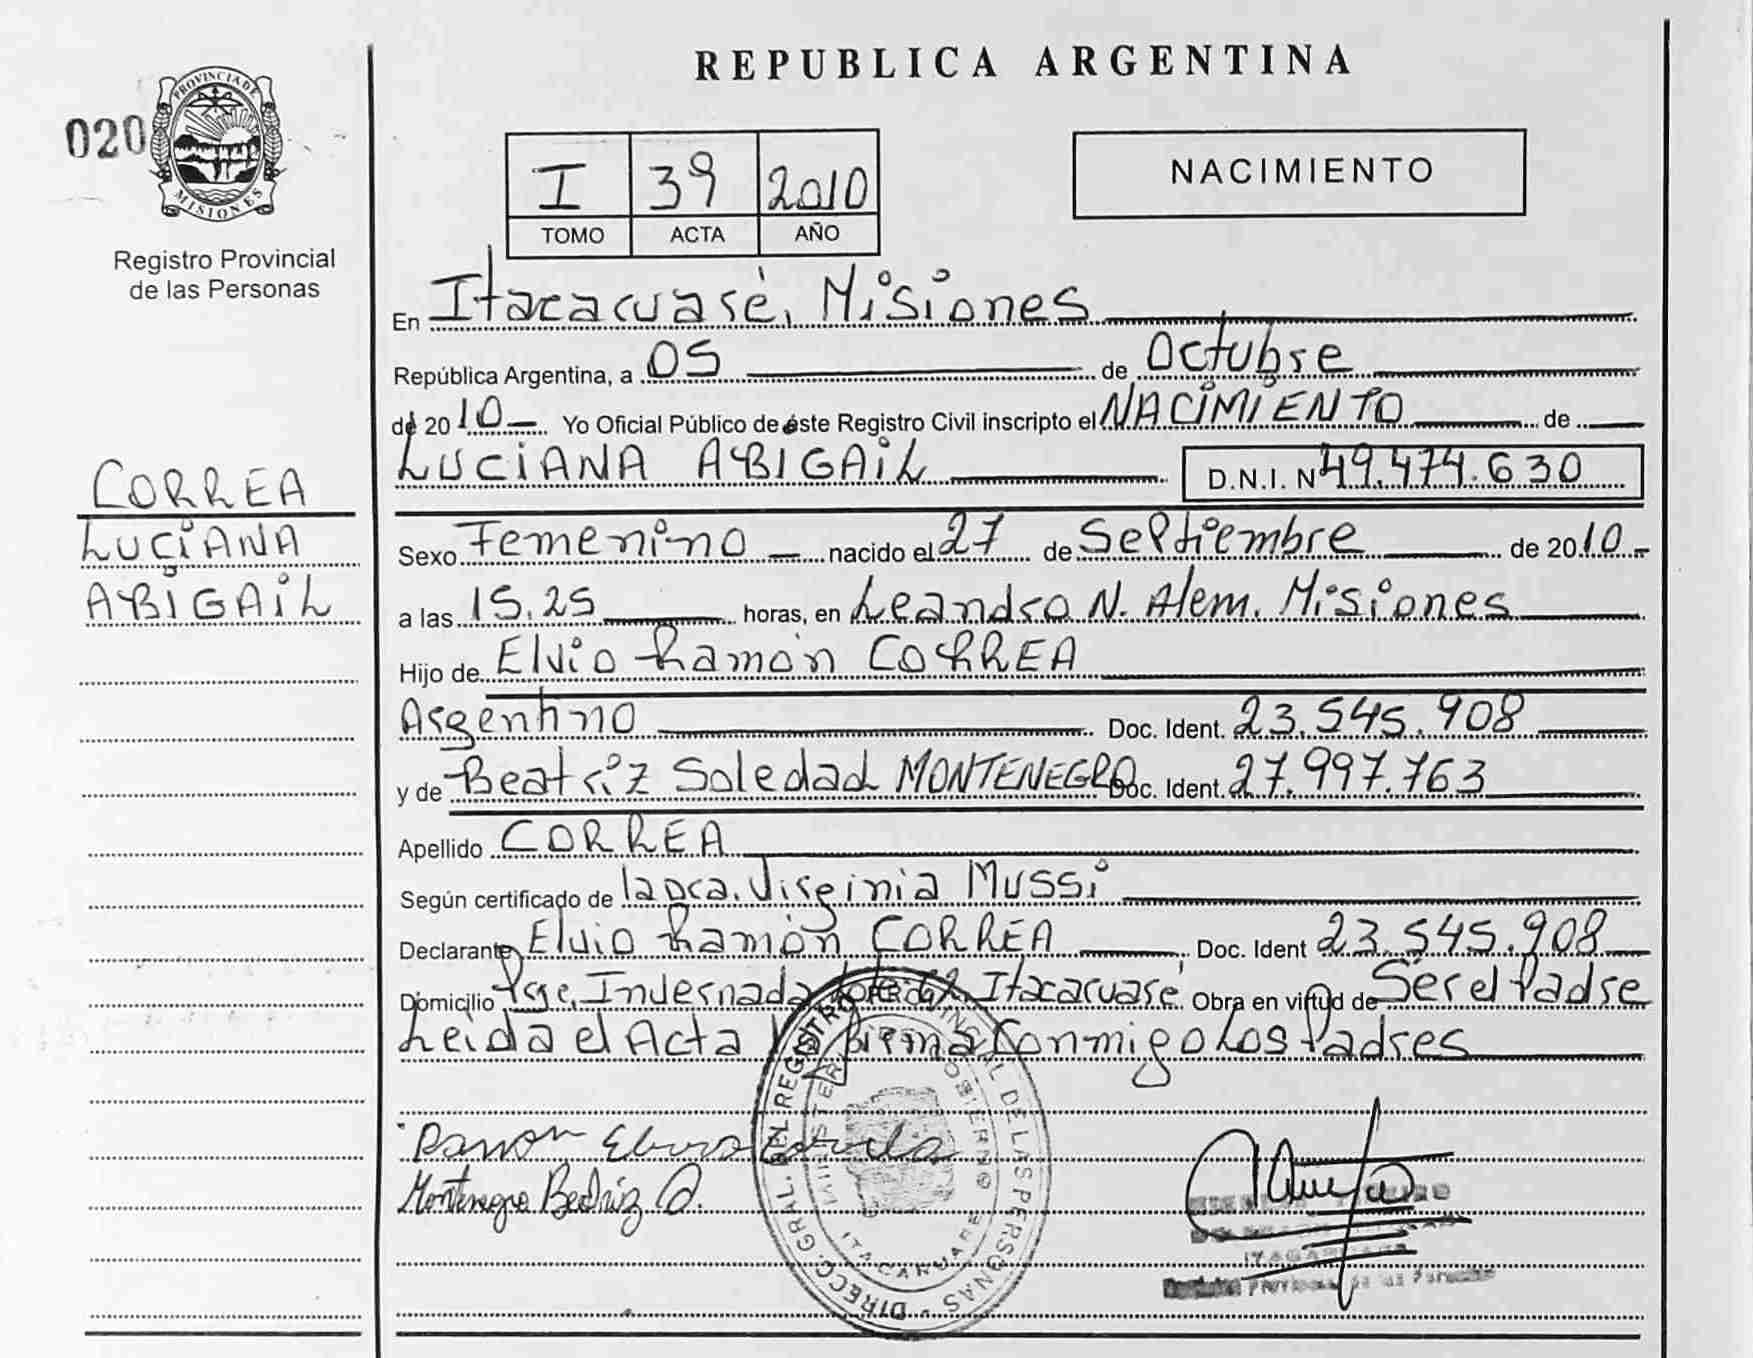 REPUBLICA ARGENTINA
020
PROVINCIA DE
MISIONES
Registro Provincial
de las Personas
I 39 2010
TOMO ACTA AÑO
NACIMIENTO
En Itacaruaré, Misiones
República Argentina, a 05 de Octubre
de 2010 Yo Oficial Público de éste Registro Civil inscripto el NACIMIENTO de
LUCIANA ABIGAIL D.N.I. N 49.474.630
CORREA
LUCIANA
ABIGAIL
Sexo Femenino nacido el 27 de Septiembre de 2010
a las 15.25 horas, en Leandro N. Alem. Misiones
Hijo de Elvio Ramón CORREA
Argentino Doc. Ident. 23.545.908
y de Beatriz Soledad MONTENEGRO Doc. Ident. 27.997.763
Apellido CORREA
Según certificado de la Dca. Virginia Mussi
Declarante Elvio Ramón CORREA Doc. Ident 23.545.908
Domicilio Pje. Invernada Itacaruaré Obra en virtud de Ser el Padre
Leida el Acta firma Conmigo Los Padres
Ramon
Montenegro Beatriz S.
DIRECC. GRAL. DEL REGISTRO PROVINCIAL DE LAS PERSONAS
MINISTERIO GOBIERNO
ITACARUARE
Provincial de las Personas